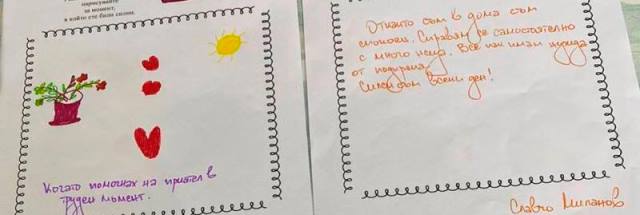 нарисувайте
за момент,
в който сте били силни.
Когато помогнах на приятел в
труден момент.
Откакто съм в дома съм
спокоен. Справям се самостоятелно
с много неща. Все пак имам нужда
от подкрепа.
Силен съм всеки ден!
Славчо Миланов